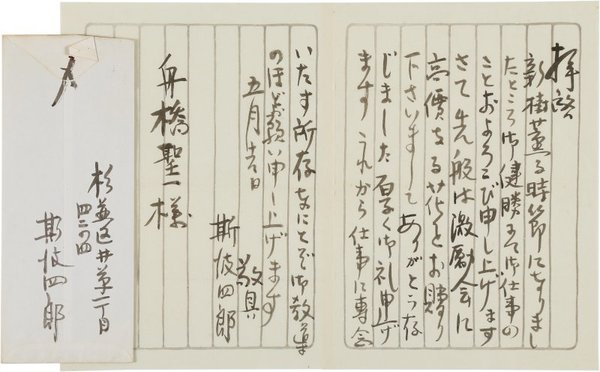 拝啓
新樹薫る時節になりまし
たところ御健勝にて御仕事の
ことおよろこび申し上げます
さて先般は激励会に
高價なる花をお贈り
下さいまして ありがとう存
じました 厚く御礼申上げ
ます これから仕事に専念
いたす所存なにとぞ御教導
のほどお願い申し上げます
敬具
五月
斯波四郎
舟橋聖一様
杉並区井草一丁目
四二ノ四
斯波四郎